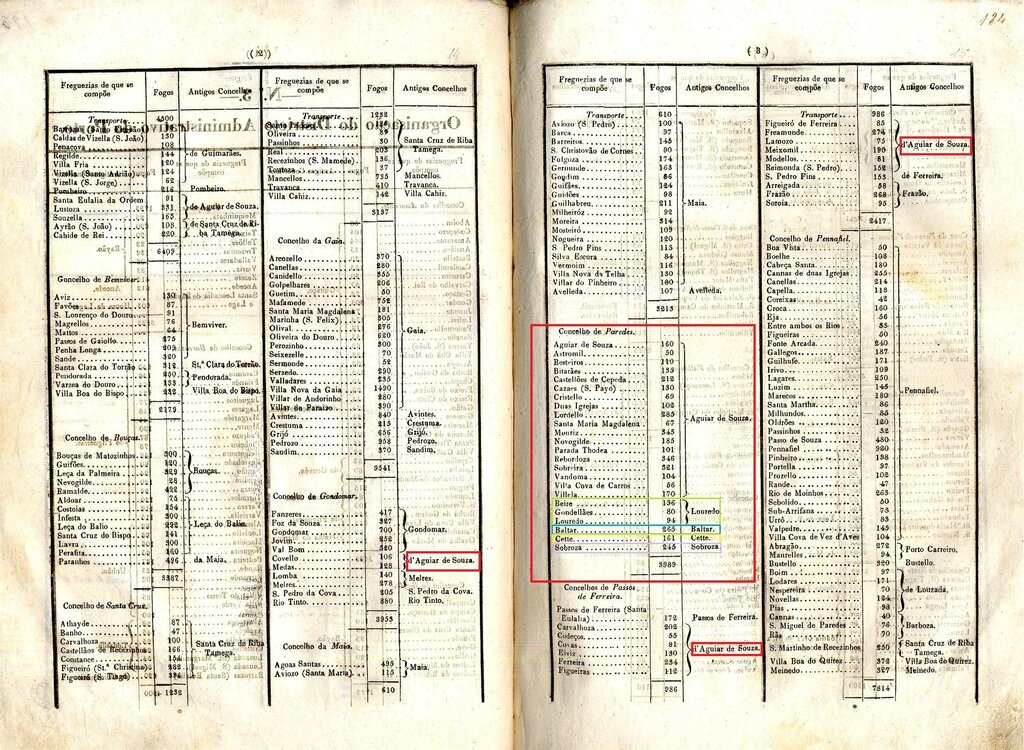 ( 2 )
Freguezias de que se compõe Fogos Antigos Concelhos
Transporte 4500
Caldas de Vizella (S. João) 138
Penacova 108
Regilde 144
Villa Fria 120
Vizella (Santo Adrião) 124
Vizella (S. Jorge) 62
de Guimarães.
Pombeiro 216 Pombeiro.
Santa Eulalia da Ordem 91
Lustoza 331
Souzella 165
de Aguiar de Souza.
Ayrão (S. João) 108
Cahide de Rei 220
de Santa Cruz de Riba Tamega.
6409
Concelho de Bemviver.
Aviz 130
Favões 87
S. Lourenço do Douro 91
Magrellos 76
Mattos 64
Passos de Gaiollo 275
Penha Longa 209
Sande 320
Bemviver.
Santa Clara do Torrão 312 St.ª Clara do Torrão.
Pendorada 250
Varzea do Douro 133
Pendorada.
Villa Boa do Bispo 232 Villa Boa do Bispo.
2179
Concelho de Bouças.
Bouças de Matozinhos 500
Guifões 120
Leça da Palmeira 300
Nevogilde 28
Ramalde 422
Bouças.
Aldoar 75
Costoias 154
Infesta 300
Leça do Balio 292
Santa Cruz do Bispo 141
Leça do Balio.
Lavra 300
Perafita 160
Paranhos 496
da Maia.
3367
Concelho de Santa Cruz.
Athayde 87
Banho 47
Carvalhoza 100
Castellãos de Recezinhos 166
Constance 154
Figueiró (St.ª Christina) 182
Figueiró (S. Tiago)
Santa Cruz da Riba Tamega.
1232
Freguezias de que se compõe Fogos Antigos Concelhos
Transporte 1232
Oliveira 87
Passinhos 30
Real 203
Recezinhos (S. Mamede) 136
Toutoza 37
Santa Cruz de Riba Tamega.
Mancellos 755 Mancellos.
Travanca 410 Travanca.
Villa Cahiz 142 Villa Cahiz.
3137
Concelho da Gaia.
Arcozello 370
Canellas 280
Canidello 355
Golpelhares 206
Guetim 50
Mafamede 752
Santa Maria Magdalena 181
Marinha (S. Felix) 305
Olival 276
Oliveira do Douro 620
Perozinho 300
Seixezello 70
Sermonde 52
Serzedo 290
Valladares 235
Villa Nova da Gaia 1490
Villar de Andorinho 280
Villar do Paraiso 390
Gaia.
Avintes 840 Avintes.
Crestuma 215 Crestuma.
Grijó 656 Grijó.
Pedrozo 958 Pedrozo.
Sandim 370 Sandim.
9541
Concelho de Gondomar.
Fanzeres 417
Foz da Souza 327
Gondomar 700
Jovim 252
Val Bom 520
Gondomar.
Covello 106
Medas 128
d'Aguiar de Souza.
Lomba 140
Melres 278
Melres.
S. Pedro da Cova 205 S. Pedro da Cova.
Rio Tinto 880 Rio Tinto.
3953
Concelho da Maia.
Agoas Santas 495
Aviozo (Santa Maria) 115
Maia.
610
124
( 3 )
Freguezias de que se compõe Fogos Antigos Concelhos
Transporte 610
Aviozo (S. Pedro) 100
Barca 97
Barreiros 145
S. Christovão de Cornes 90
Folgoza 174
Gemunde 163
Gondim 86
Guifães 124
Guidões 98
Guilhabreu 211
Milheiróz 92
Moreira 314
Mosteiró 109
Nogueira 120
S. Pedro Fins 113
Silva Escura 84
Vermoim 116
Villa Nova da Telha 130
Villar do Pinheiro 180
Maia.
Avelleda 107 Avelleda.
3213
Concelho de Paredes.
Aguiar de Souza 160
Astromil 50
Besteiros 110
Bitarães 135
Castellões de Cepeda 212
Cazaes (S. Payo) 130
Cristello 69
Duas Igrejas 102
Lordello 285
Santa Maria Magdalena 67
Mouriz 345
Novogilde 185
Parada Thodea 101
Rebordoza 346
Sobreira 321
Vandoma 104
Villa Cova de Carros 56
Villela 170
Aguiar de Souza.
Beire 196
Gondellães 80
Louredo 94
Louredo.
Baltar 265 Baltar.
Cette 161 Cette.
Sobroza 245 Sobroza
3989
Concelhos de Passos de Ferreira.
Passos de Ferreira (Santa Eulalia) 172 Passos de Ferreira.
Carvalhoza 202
Codeços 55
Covas 81
Eiviz 130
Ferreira 234
Figueiras 112
d'Aguiar de Souza.
986
Freguezias de que se compõe Fogos Antigos Concelhos
Transporte 986
Figueiró de Ferreira 85
Freamunde 274
Lamozo 75
Meixomil 190
Modellos 81
d'Aguiar de Souza.
Reimonda (S. Pedro) 152
S. Pedro Fins 153
de Ferreira.
Arreigada 58
Frazão 268
Soroia 95
Frazão.
2417
Concelho de Pennafiel.
Boa Vista 50
Boelhe 108
Cabeça Santa 180
Cannas de duas Igrejas 255
Canellas 214
Capella 118
Coreixas 42
Croca 160
Eja 56
Entre ambos os Rios 33
Figueiras 50
Fonte Arcada 240
Gallegos 187
Guilhufe 171
Irivo 109
Lagares 250
Luzim 145
Marecos 180
Santa Martha 86
Milhundos 85
Oldrões 120
Passinhos 32
Passo de Souza 480
Pennafiel 920
Pinheiro 198
Portella 97
Prozello 102
Rande 47
Rio de Moinhos 263
Sebolido 50
Sub-Arrifana 73
Urrô 85
Valpedre 145
Villa Cova de Vez d'Aves 104
Pennafiel.
Abragão 272
Maurelles 94
Porto Carreiro.
Bustello 320 Bustello.
Boim 97
Lodares 171
Nespereira 70
Novellas 124
Pias 98
de Louzada.
Cannas 40
S. Miguel de Paredes 76
Rãs 70
Barboza.
S. Martinho de Recezinhos 250 Santa Cruz de Riba Tamega.
Villa Boa do Quirez 372 Villa Boa do Quirez.
Meinedo 327 Meinedo.
7814